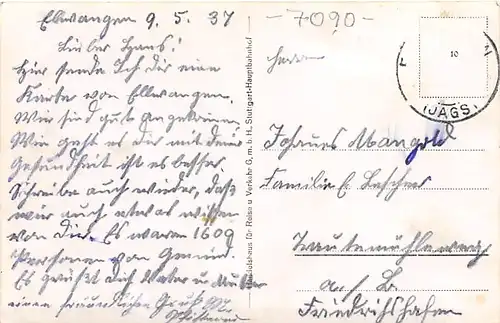 Ellwangen 9. 5. 37
Lieber Hans!
Hier sende Ich dir eine
Karte von Ellwangen.
Wir sind gut angekommen
Wie geht es dir mit deiner
Gesundheit ist es besser
Schreibe auch wieder, daß
wir auch etwas wissen
von Dir. Es waren 1609
Personen von Gmünd.
Es grüßt dich Vater u. Mutter
einen freundlichen Gruß
Verlagshaus für Reise u. Verkehr G. m. b. H., Stuttgart-Hauptbahnhof
-7090-
Herrn
10
(JAGST)
Johannes Mangold
Familie
a. / B.
Friedrichshafen